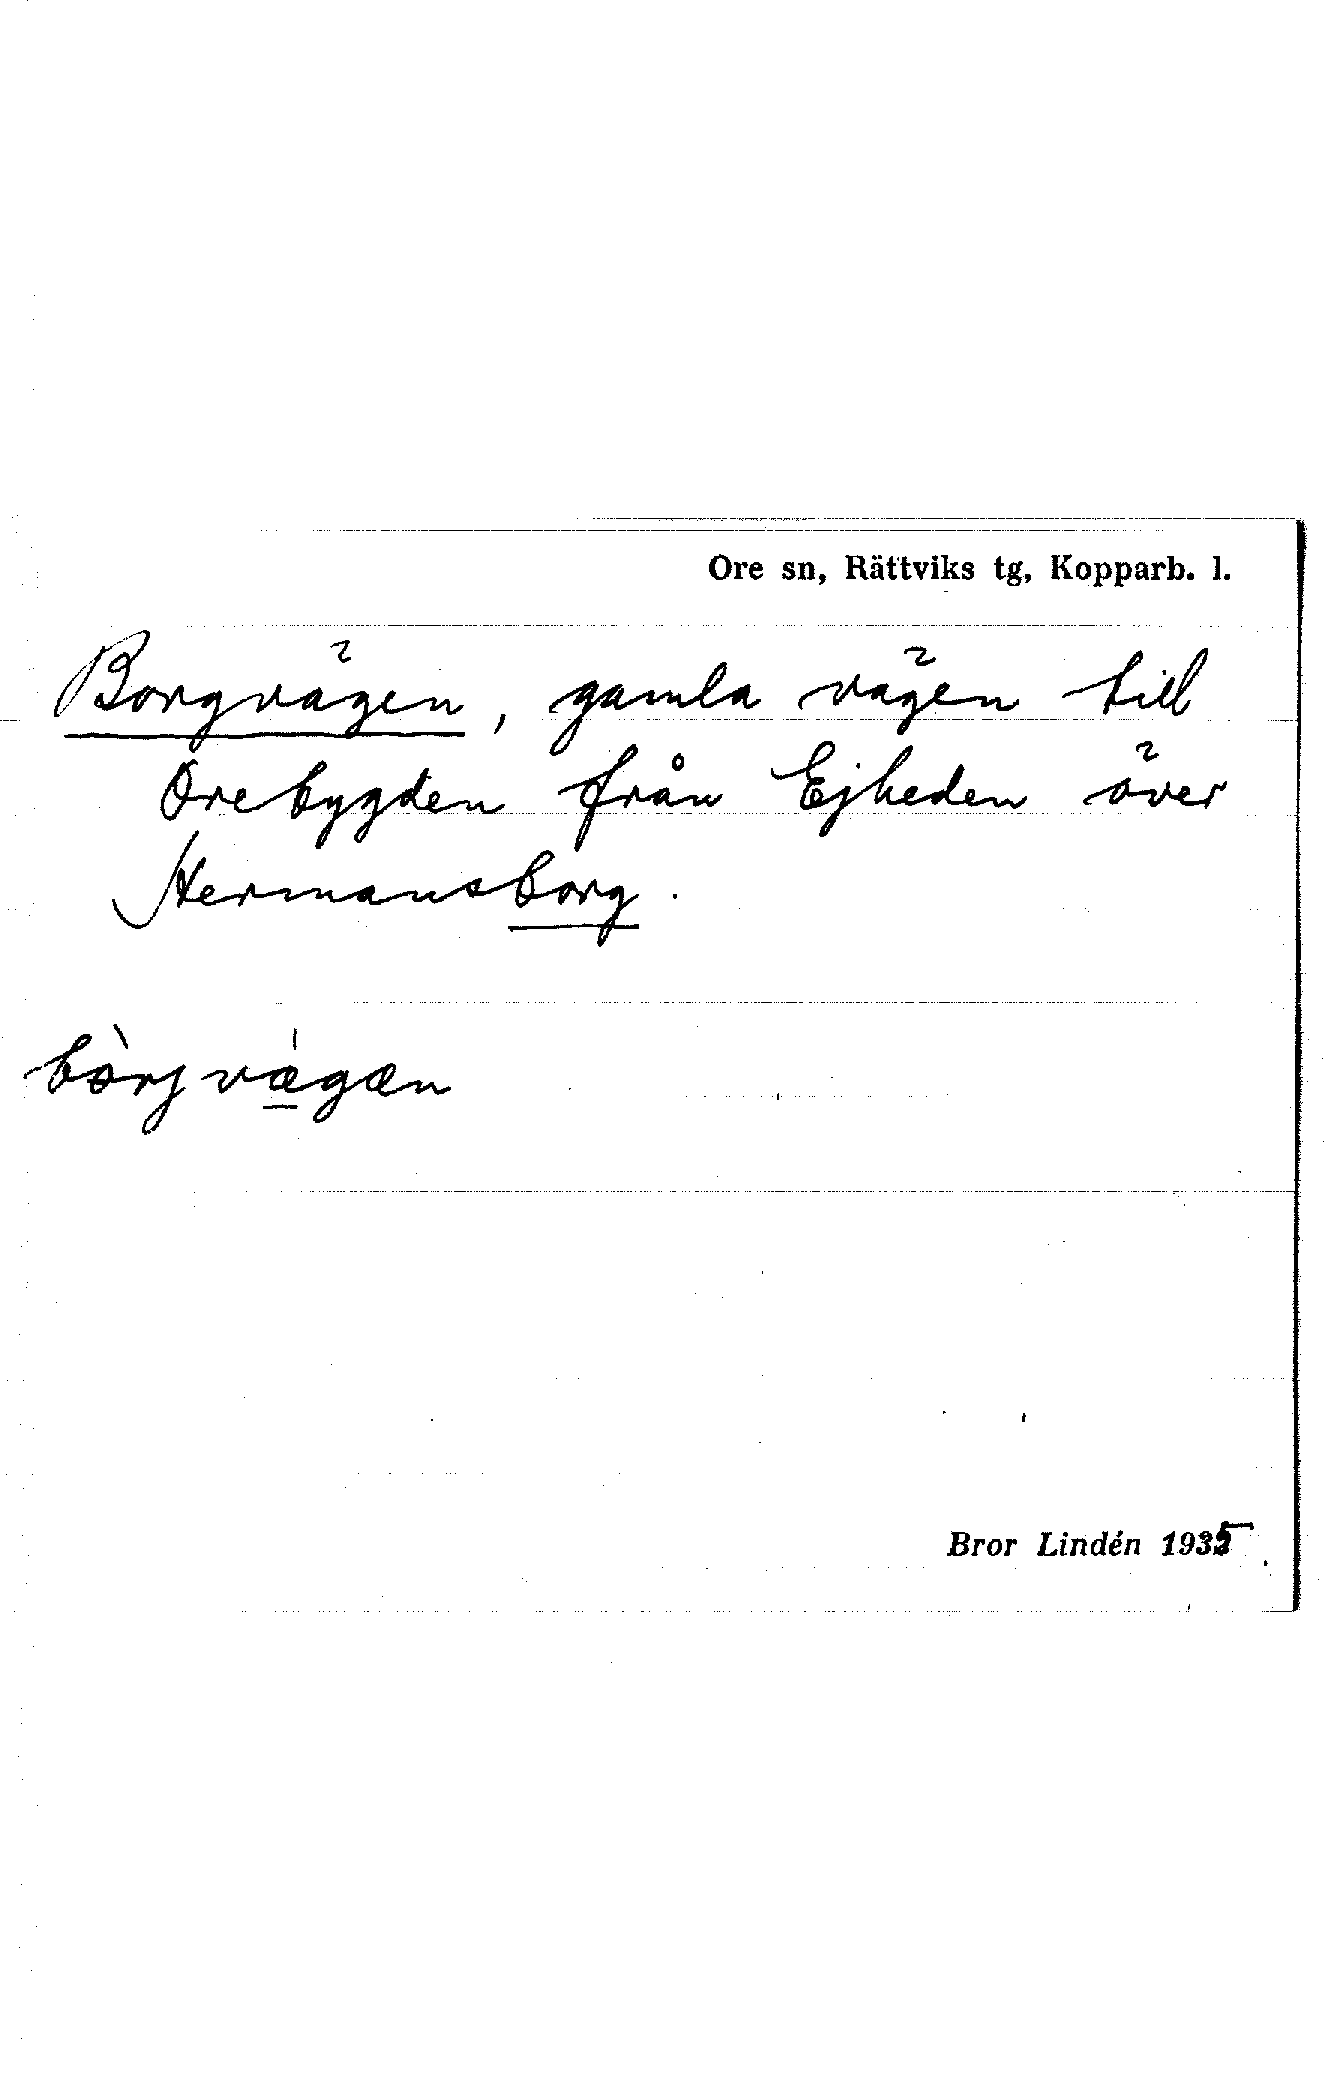 Ore sn, Rättviks tg, Kopparb. l.
Borgvägen, gamla vägen till
Orebygden från Ejheden över
Hermansborg.
bòrjvægæn
Bror Lindén 1935